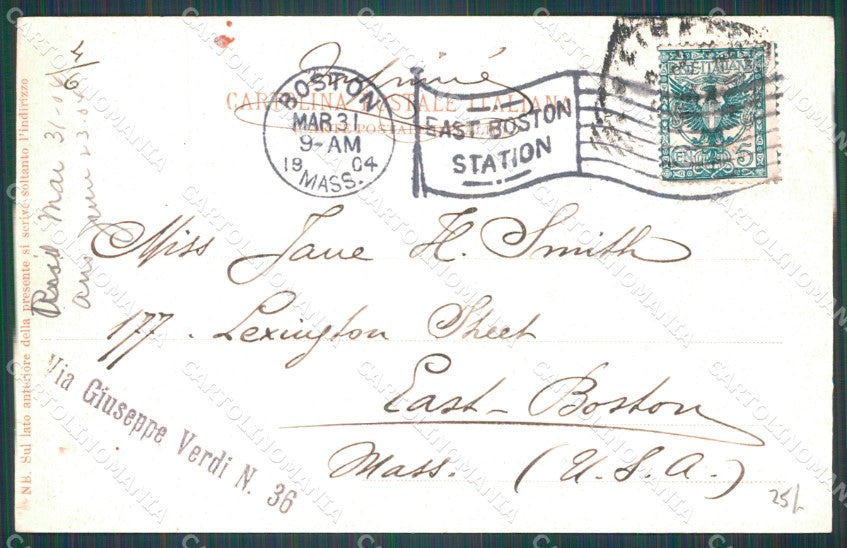 Imprimé
CARTOLINA POSTALE ITALIANA
BOSTON
MAR 31
9-AM
19 04
MASS.
EAST BOSTON
STATION
POSTE ITALIANE
Miss Jane H. Smith
177. Lexington Street
East-Boston
Mass. (U.S.A.)
Via Giuseppe Verdi N. 36
NB. Sul lato anteriore della presente si scrive soltanto l'indirizzo
Mar 31-04
4/6
25/-
CARTOLINOMANIA